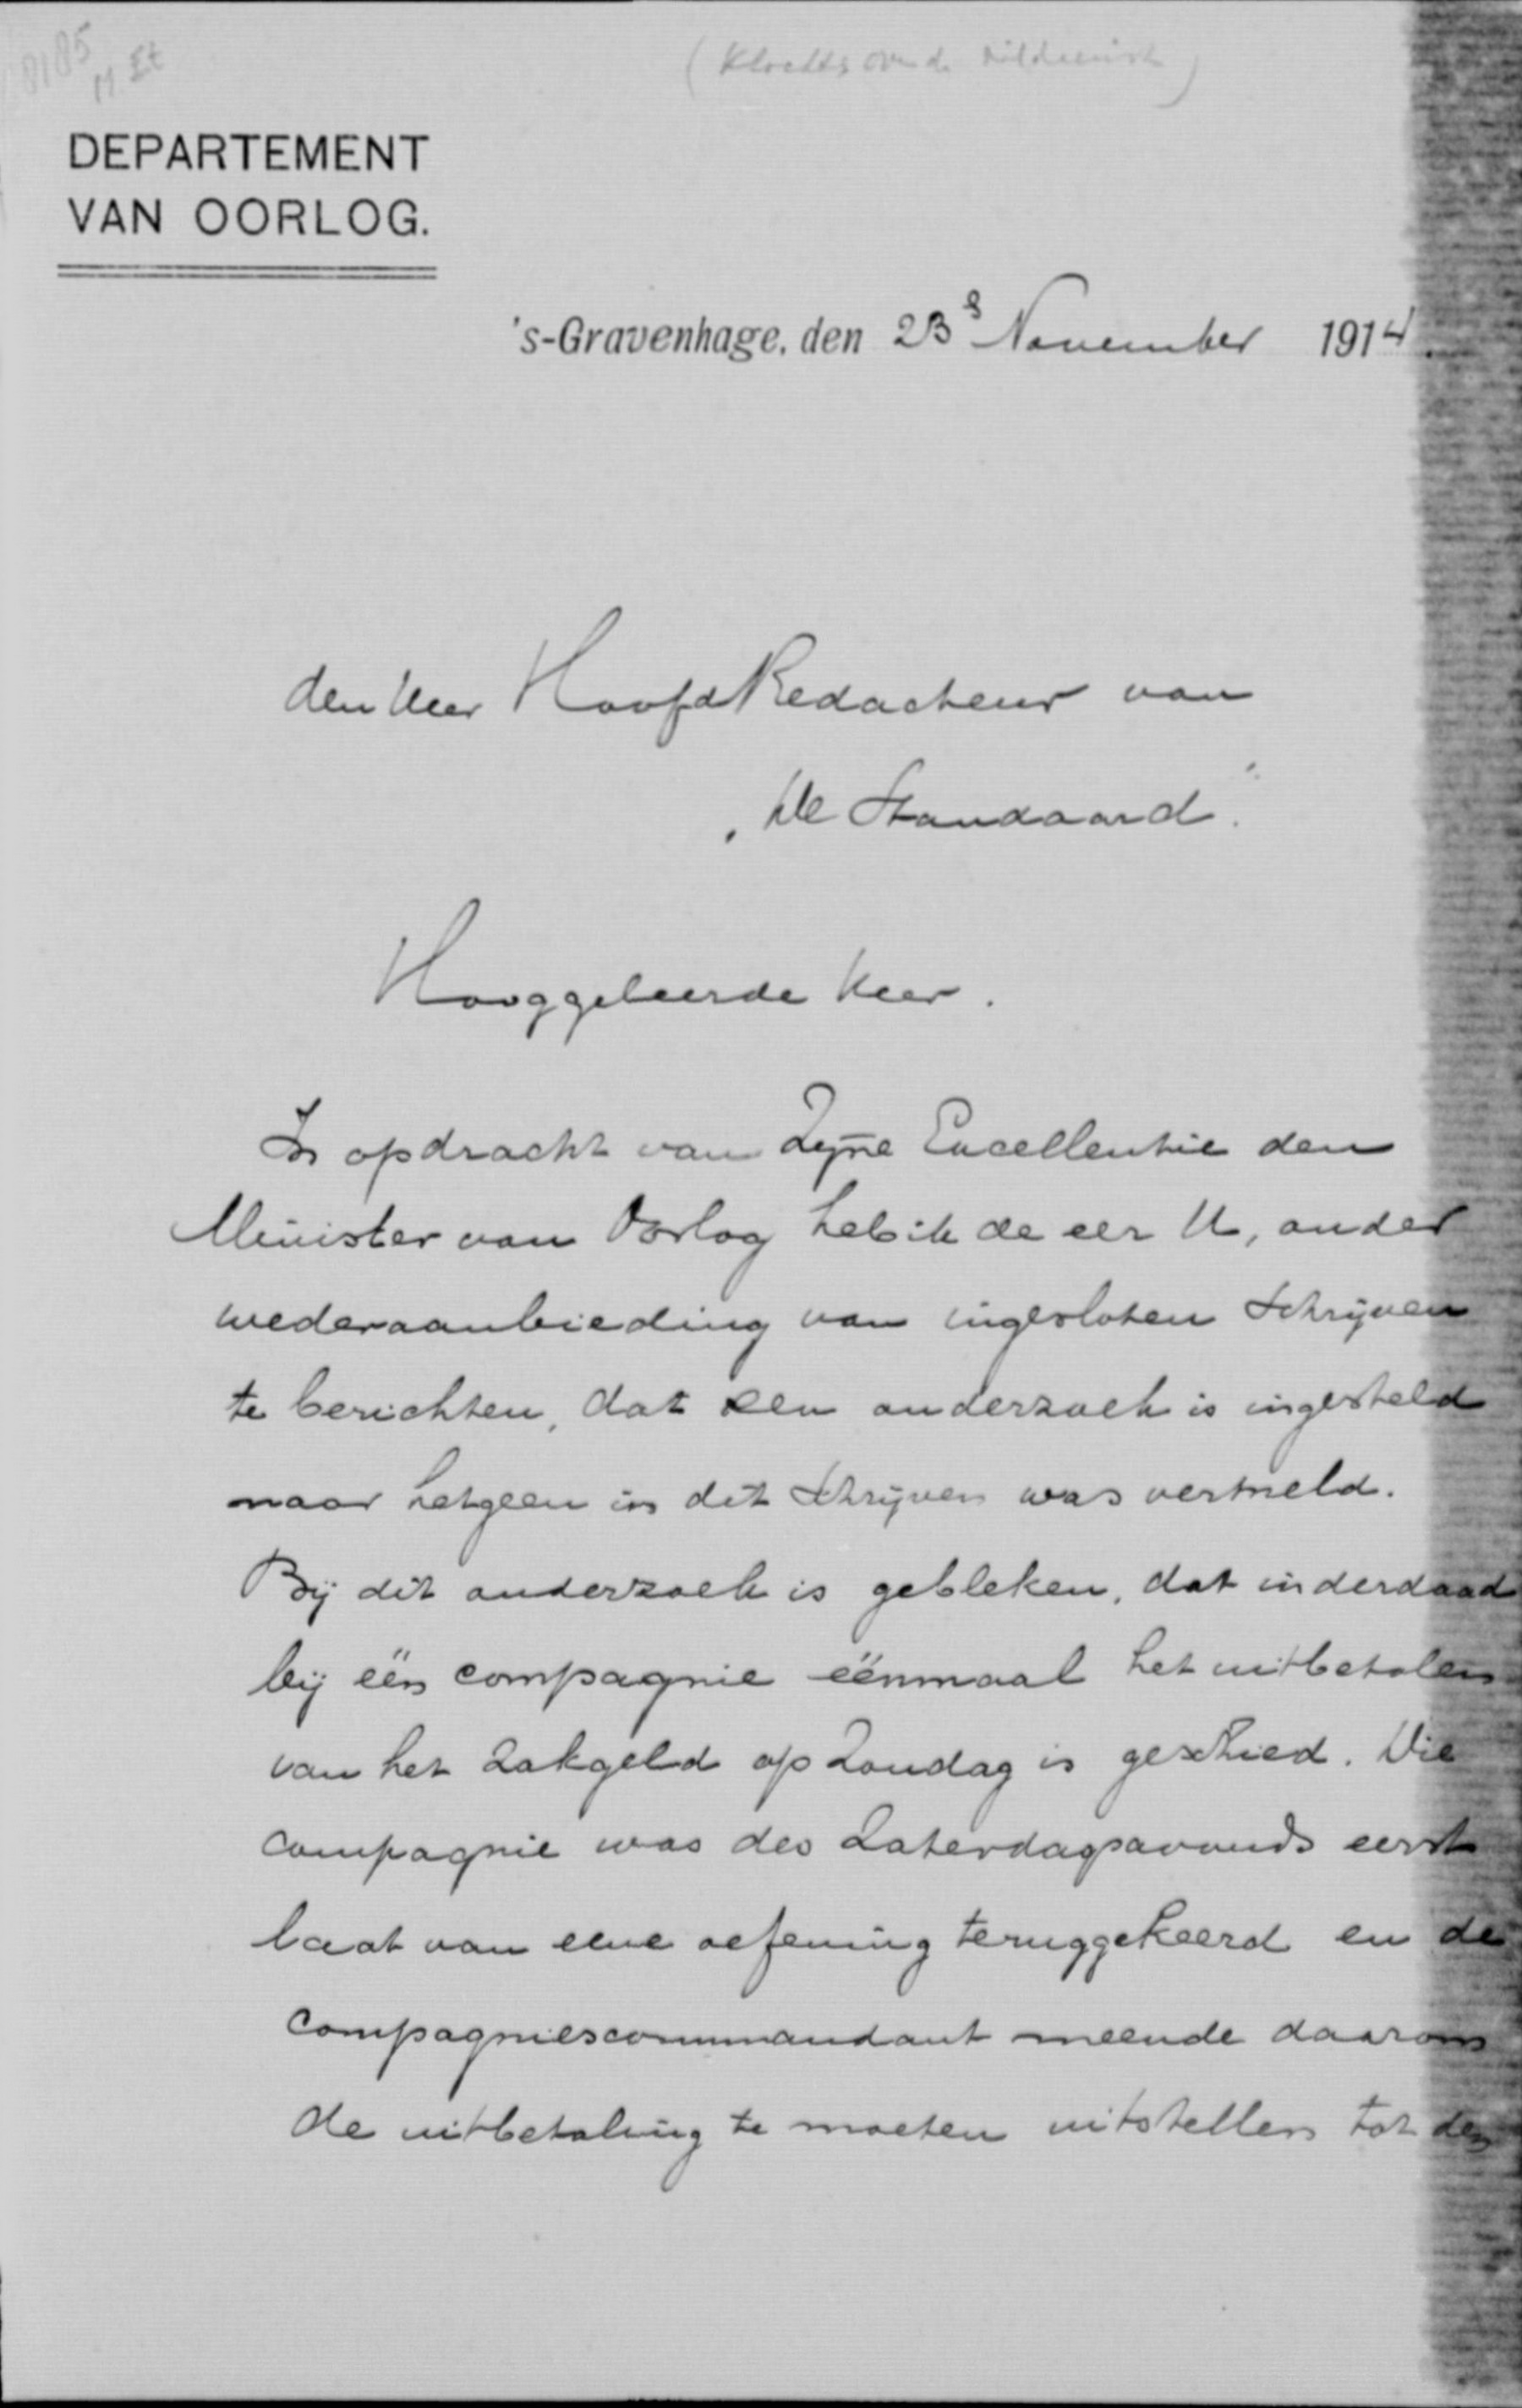 8185
(Klachts over de mildienst)
DEPARTEMENT
VAN OORLOG.
's-Gravenhage, den 23s November 1914.
den Heer HoofdRedacteur van
„De Standaard".
Hooggeleerde Heer.
In opdracht van Zijne Excellentie den
Minister van Oorlog heb ik de eer U, onder
wederaanbieding van ingesloten schrijven
te berichten, dat een onderzoek is ingesteld
naar hetgeen in dit schrijven was vermeld.
Bij dit onderzoek is gebleken, dat inderdaad
bij één compagnie éénmaal het uitbetalen
van het zakgeld op Zondag is geschied. Die
compagnie was des Zaterdagsavonds eerst
laat van eene oefening teruggekeerd en de
compagniescommandant meende daarom
de uitbetaling te moeten uitstellen tot den